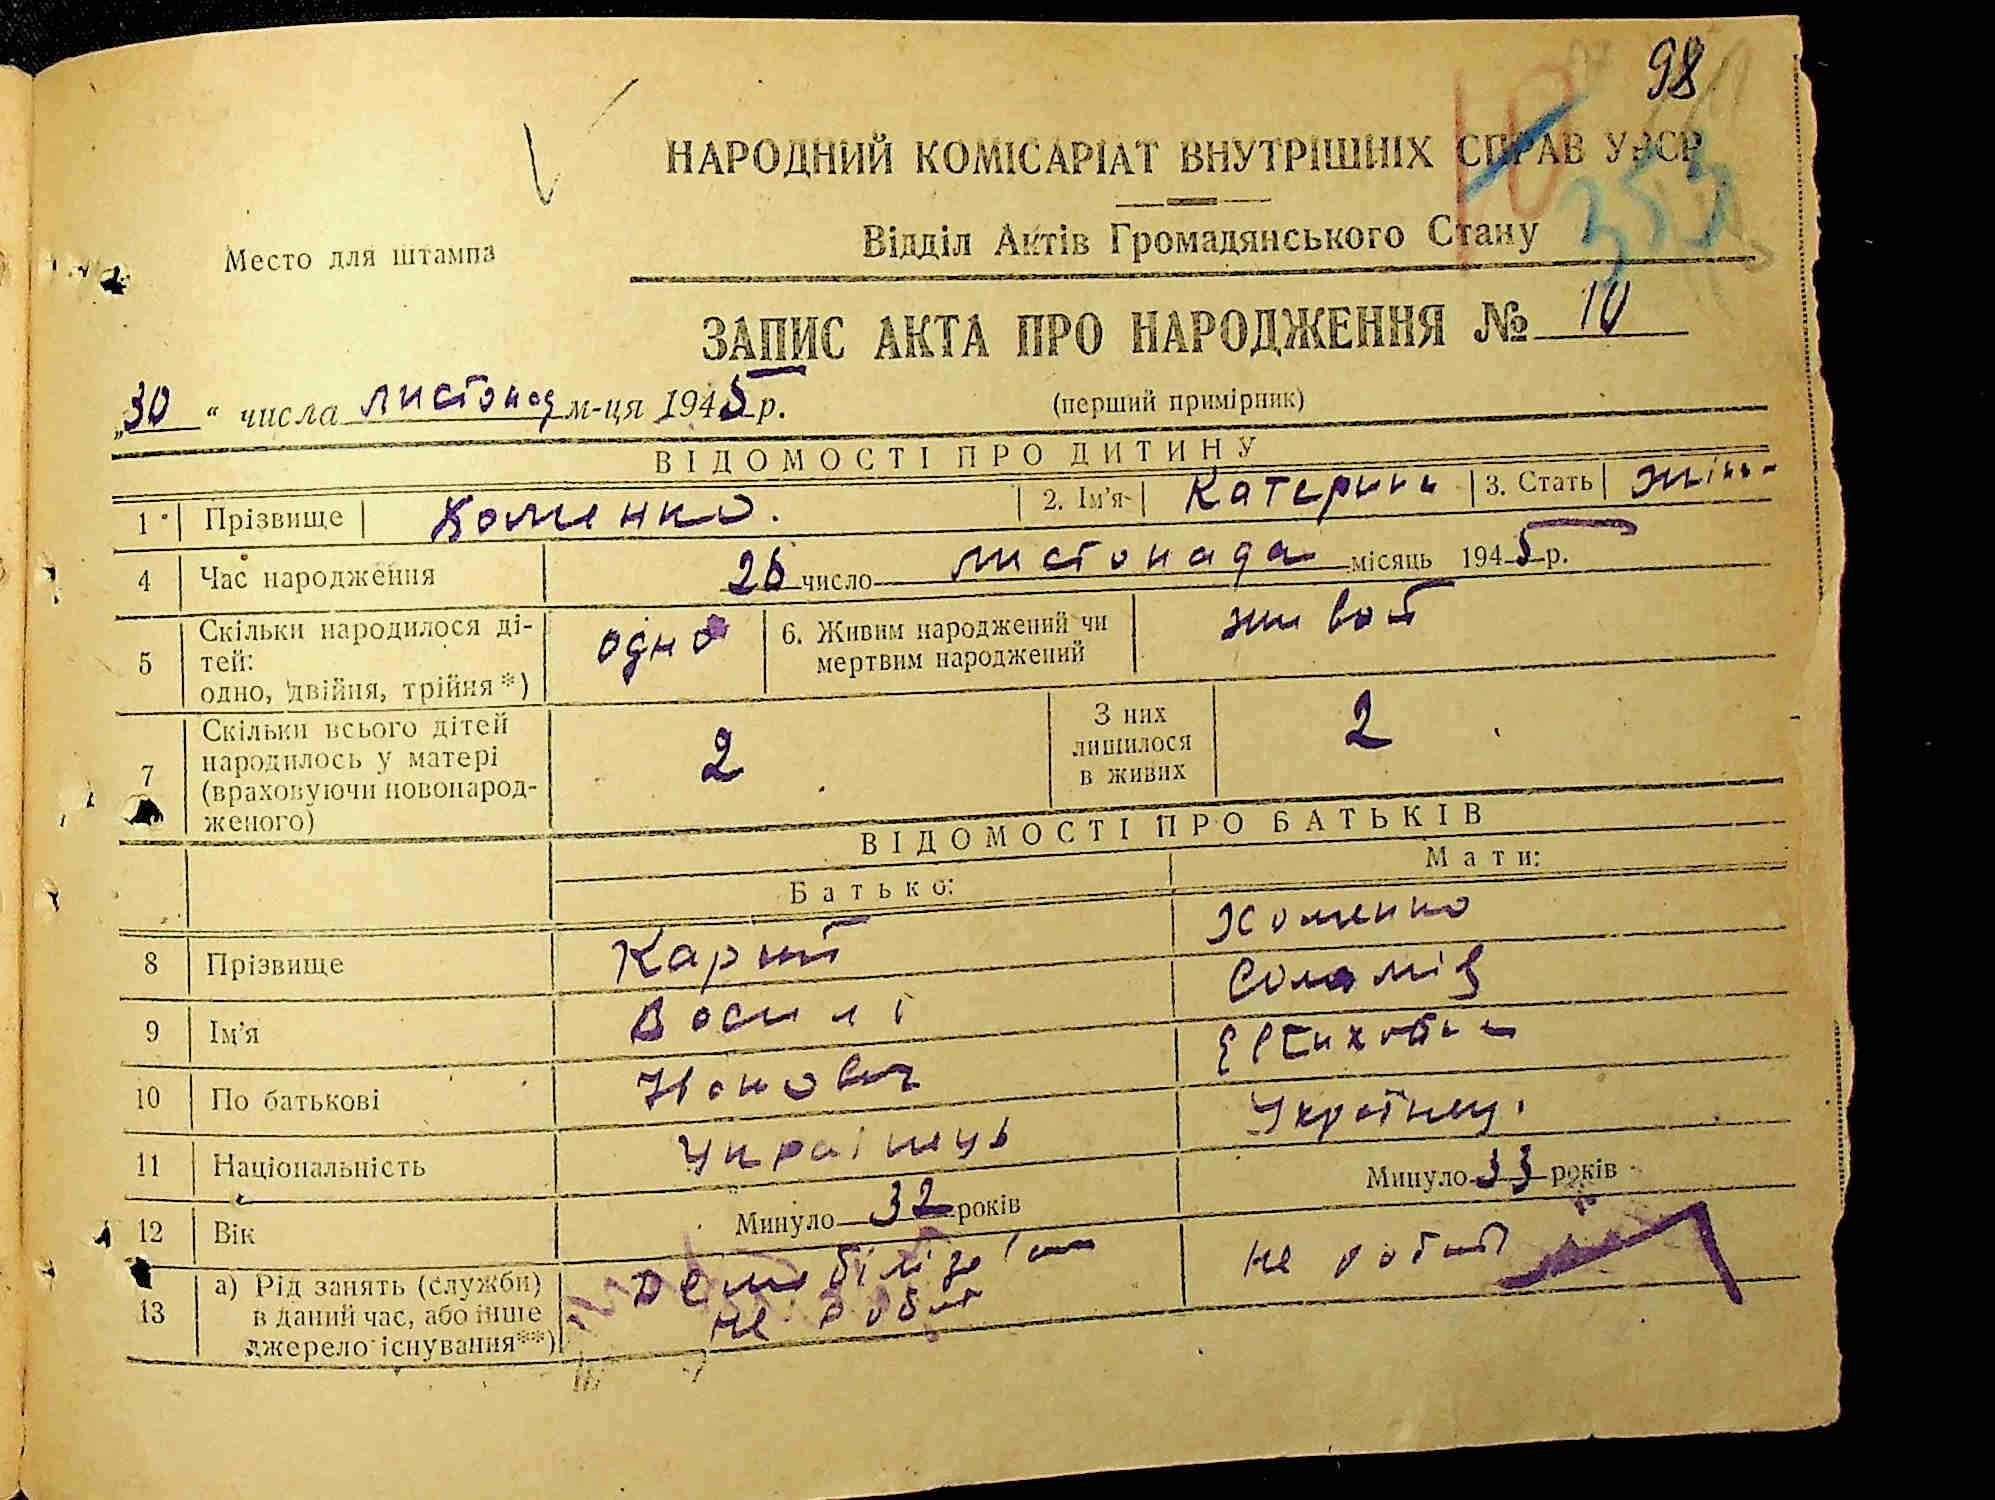 98
НАРОДНИЙ КОМІСАРІАТ ВНУТРІШНІХ СПРАВ УРСР
353
Відділ Актів Громадянського Стану
Место для штампа
ЗАПИС АКТА ПРО НАРОДЖЕННЯ № 10
„30“ числа листопад м-ця 1945 р. (перший примірник)
ВІДОМОСТІ ПРО ДИТИНУ
1 Прізвище Хоменко. 2. Ім'я Катерина 3. Стать жін.
4 Час народження 26 число листопада місяць 1945 р.
5 Скільки народилося ді-
тей:
одно, двійня, трійня*) одно 6. Живим народжений чи
мертвим народжений живой
7 Скільки всього дітей
народилось у матері
(враховуючи новонарод-
женого) 2 З них
лишилося
в живих 2
ВІДОМОСТІ ПРО БАТЬКІВ
Батько: Мати:
8 Прізвище Карий Хоменко
9 Ім'я Василі
10 По батькові
11 Національність Українць
12 Вік Минуло 32 років Минуло 33 років
13 а) Рід занять (служби)
в даний час, або інше
джерело існування**)
не робит не робит